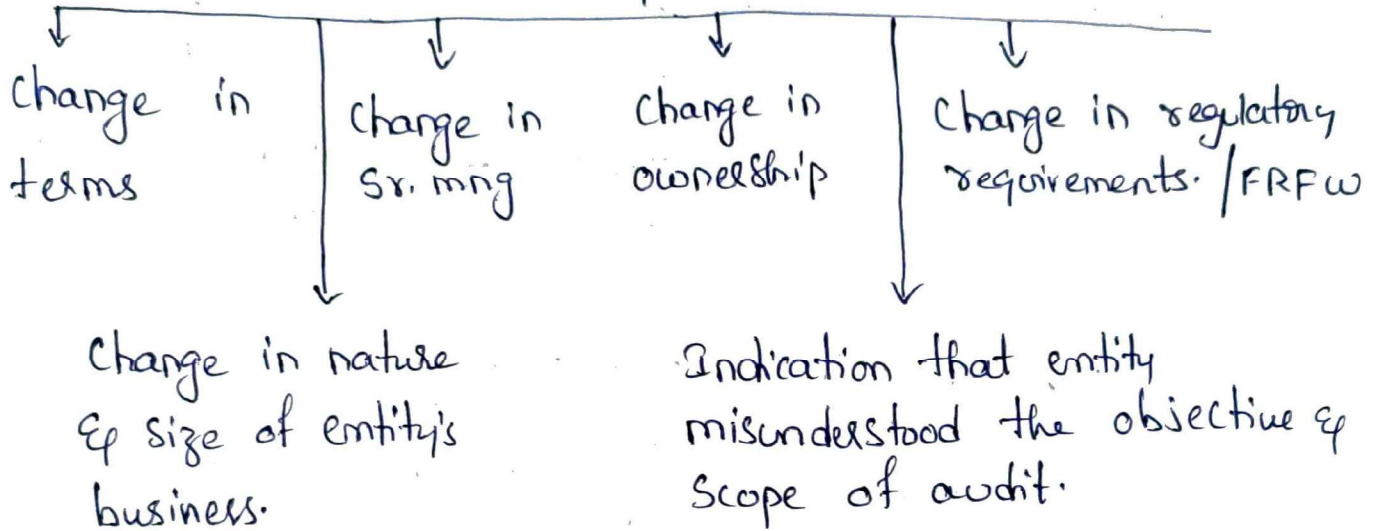 Change in
terms
Change in
Sr. mng
Change in
ownership
Change in regulatory
requirements. / FRFW
Change in nature
& size of entity's
business.
Indication that entity
misunderstood the objective &
Scope of audit.